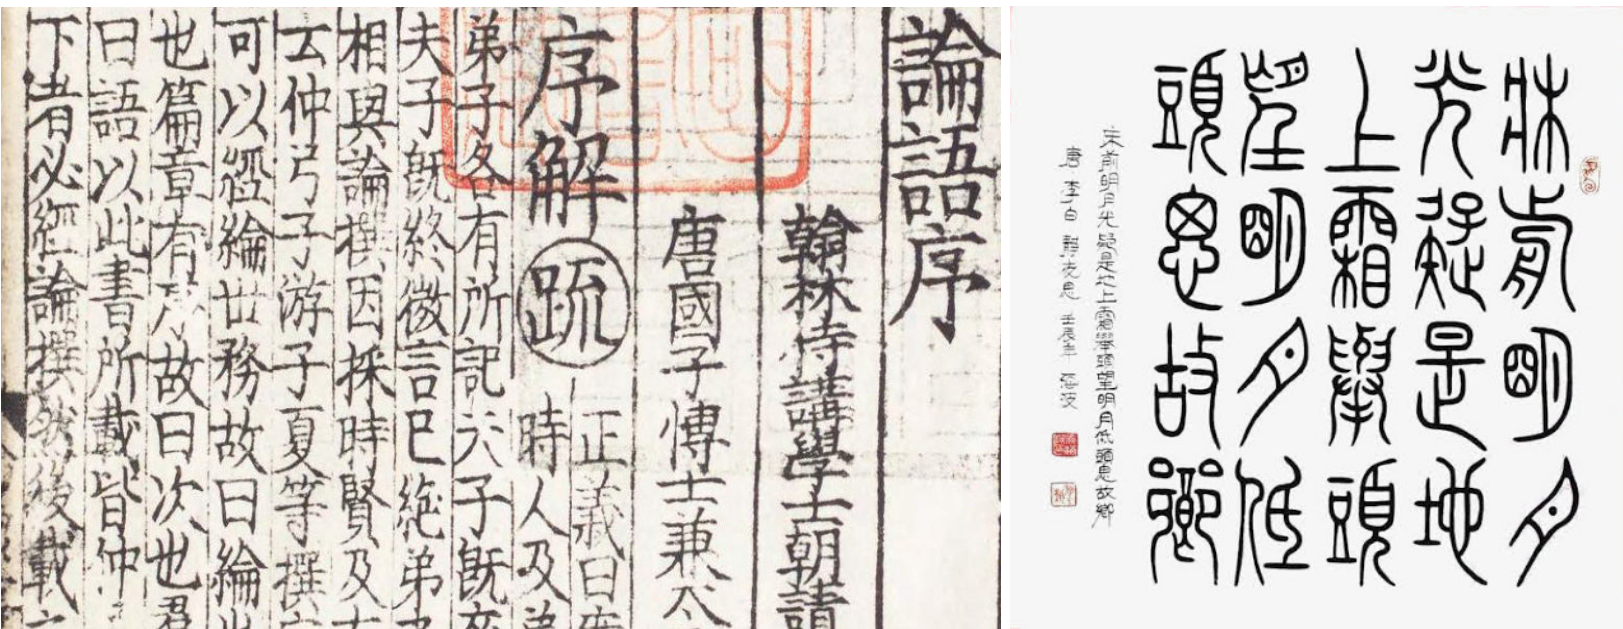 論語序
翰林侍講學士朝請
唐國子博士兼
序解疏
正義曰案
時人及弟
弟子各有所記夫子既卒
夫子既終微言已絕弟
相與論撰因採時賢及古
云仲弓子游子夏等撰定
可以經綸世務故曰綸也
也篇章有序故曰次也君
曰語以此書所載皆仲
下者必經論撰然後載之
牀前明月
光疑是地
上霜舉頭
望明月低
頭思故鄉
床前明月光疑是地上霜舉頭望明月低頭思故鄉
唐李白靜夜思 壬辰年